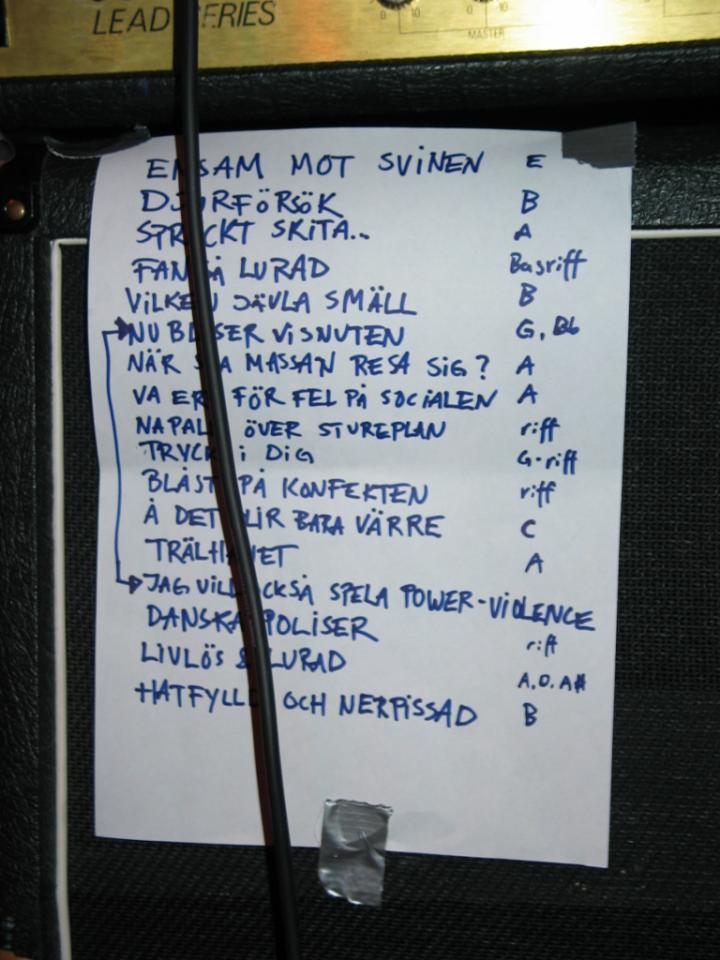 LEAD SERIES
0 10 0 10
MASTER
ENSAM MOT SVINEN E
DJURFÖRSÖK B
SKITA.. A
FAN SÅ LURAD Basriff
VILKEN JÄVLA SMÄLL B
NU BLÅSER VI SNUTEN G, Bb
NÄR SKA MASSAN RESA SIG? A
VA FÖR FEL PÅ SOCIALEN A
NAPALM ÖVER STUREPLAN riff
TRYCK i DIG G-riff
BLÅST PÅ KONFEKTEN riff
Å DET BLIR BARA VÄRRE C
TRÄLHAVET A
JAG VILL OCKSÅ SPELA POWER-VIOLENCE
DANSKA POLISER riff
LIVLÖS & LURAD A, D, A#
HATFYLLD OCH NERPISSAD B